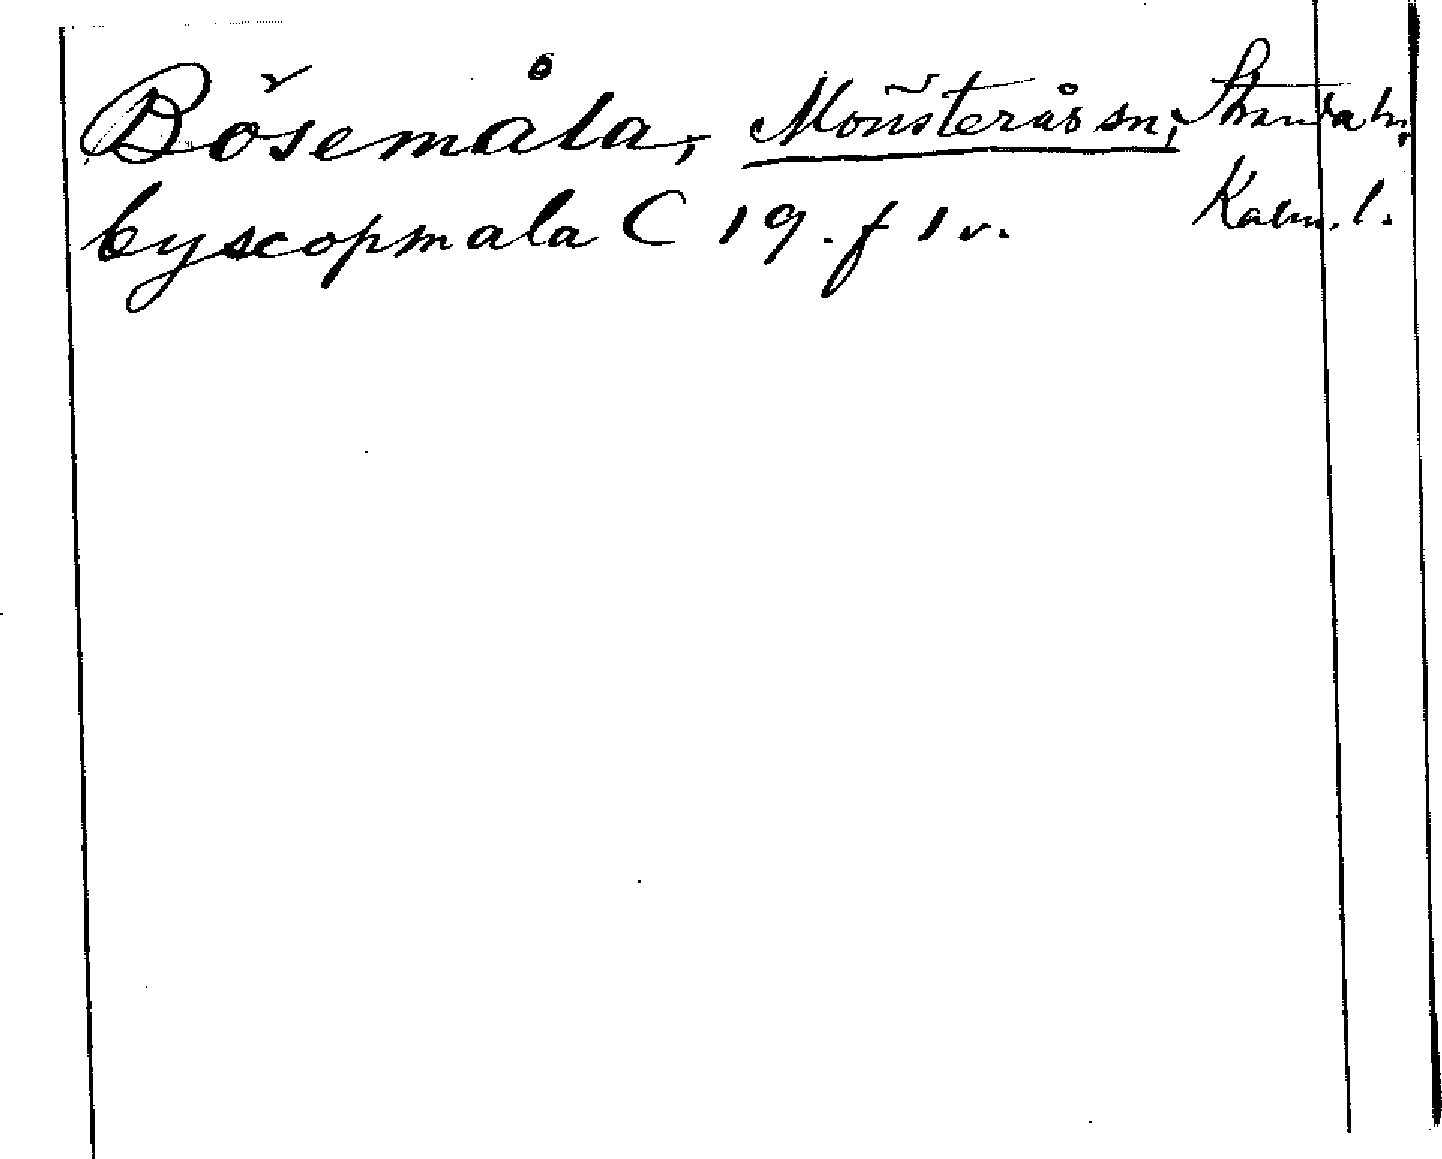 Bösemåla, Mönsterås sn, Stranda hd.
byscopmala C 19. f 1 v. Kalm. l.